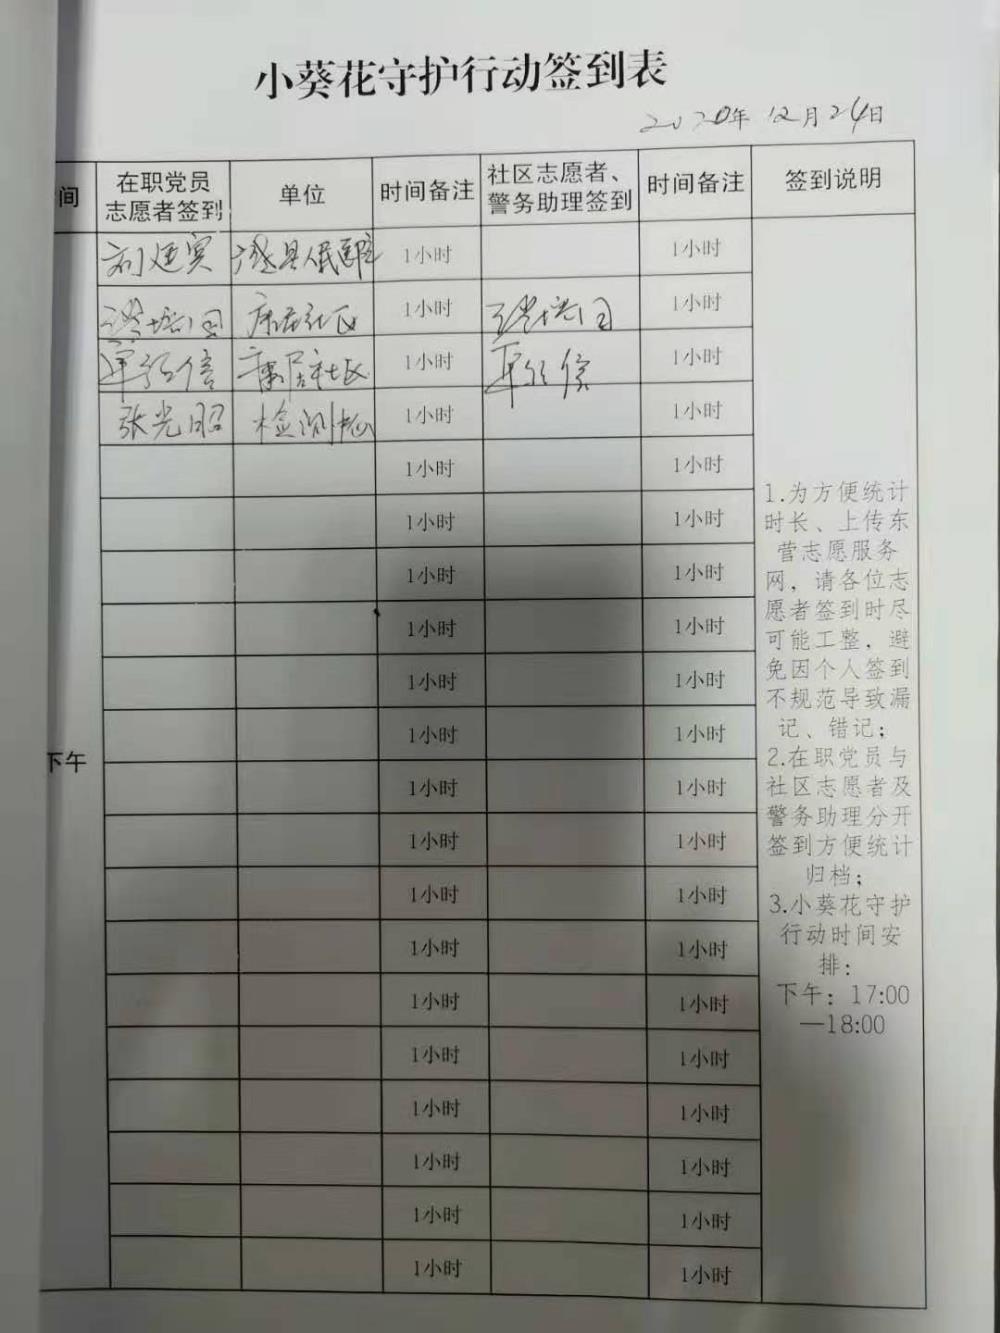 小葵花守护行动签到表
2020年 12月24日
间
在职党员
志愿者签到
单位
时间备注
社区志愿者、
警务助理签到
时间备注
签到说明
1小时
1小时
康居社区
1小时
1小时
康居社区
1小时
1小时
张光昭
1小时
1小时
1小时
1小时
1小时
1小时
1小时
1小时
1小时
1小时
1小时
1小时
1小时
1小时
下午
1小时
1小时
1小时
1小时
1小时
1小时
1小时
1小时
1小时
1小时
1小时
1小时
1小时
1小时
1小时
1小时
1小时
1小时
1小时
1小时
1.为方便统计
时长、上传东
营志愿服务
网，请各位志
愿者签到时尽
可能工整，避
免因个人签到
不规范导致漏
记、错记；
2.在职党员与
社区志愿者及
警务助理分开
签到方便统计
归档；
3.小葵花守护
行动时间安
排：
下午：17:00
—18:00